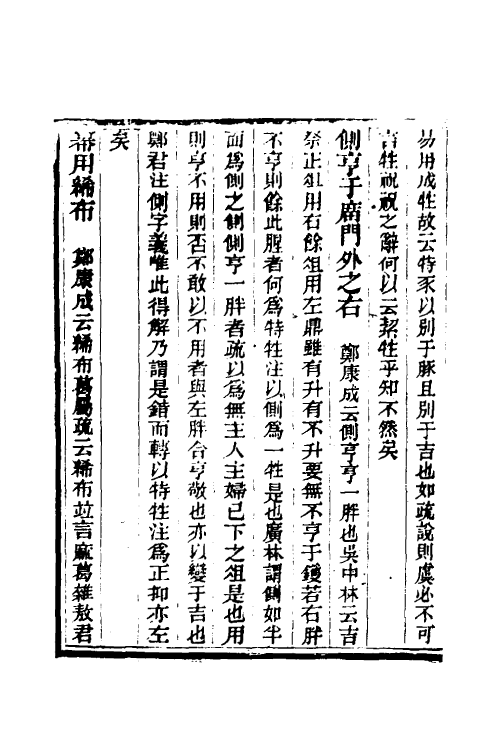 易用成牲故云特豕以別于豚且別于吉也如疏說則虞必不可
言牲祝祝之辭何以云挈牲乎知不然矣
側亨于廟門外之右　鄭康成云側亨亨一胖也吳中林云吉
祭正俎用右餘俎用左鼎雖有升有不升要無不亨于鑊若右胖
不亨則餘此腥者何爲特牲注以側爲一牲是也廣林謂側如半
面爲側之側側亨一胖者疏以爲無主人主婦已下之俎是也用
則亨不用則否不敢以不用者與左胖合亨敬也亦以變于吉也
鄭君注側字義唯此得解乃謂是錯而轉以特牲注爲正抑亦左
矣
冪用綌布　鄭康成云綌布葛屬疏云綌布竝言麻葛雜敖君